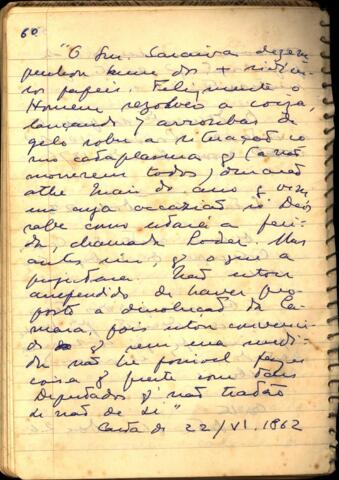 60
"O Snr. Saraiva desem-
penhou hum dos + ridicu-
los papeis. Felizmente o
Homem resolveo a cousa,
lançando 7 arrobas de
gelo sobre a situação co
mo cataplasma q (a não
morrerem todos), durará
athe Maio do anno q vem
em cuja occazião só Deos
sabe como estará a feri-
da, chamada Poder. Mas
antes sim, q o que a
projectara. Não estou
arrependido de haver pro-
posto a dissolução da Ca-
mara, pois estou convenci-
do q sem essa medi-
da não he possivel fazer
coisa q preste com taes
Deputados q não tratão
se não de si"
Carta de 22/VI.1862